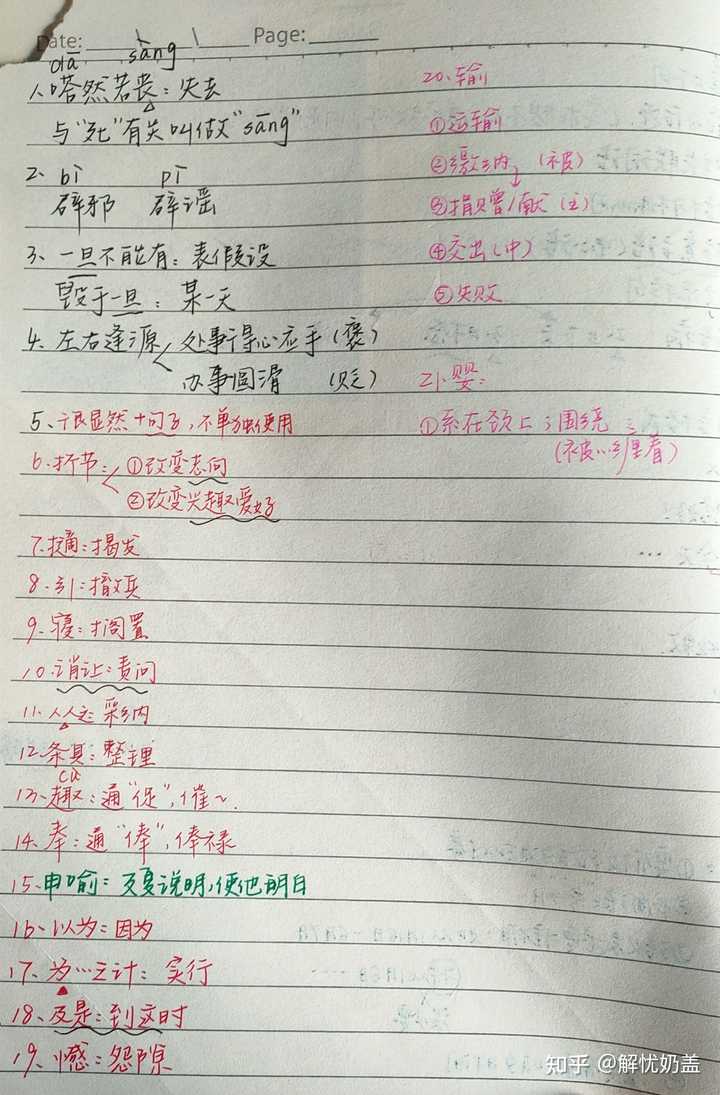 Date: \ \ Page:
dā sàng
1、嗒然若丧：失去
与"死"有关叫做"sāng"
2、bì pì
辟邪 辟谣
3、一旦不能有：表假设
毁于一旦：某一天
4、左右逢源 处事得心应手（褒）
办事圆滑 （贬）
5、很显然+句子，不单独使用
6、折节：①改变志向
②改变兴趣爱好
7、擿：揭发
8、引：撤兵
9、寝：搁置
10、诮让：责问
11、从之：采纳
12、条具：整理
cù
13、趣：通"促"，催~.
14、奉：通"俸"，俸禄
15、申喻：反复说明，使他明白
16、以为：因为
17、为…之计：实行
18、及是：到这时
19、憾：怨隙
20、输
①运输
②缴纳（被）
③捐赠/献（主）
④交出（中）
⑤失败
21、婴：
①系在颈上；围绕
（被…缠着）
知乎 @解忧奶盖